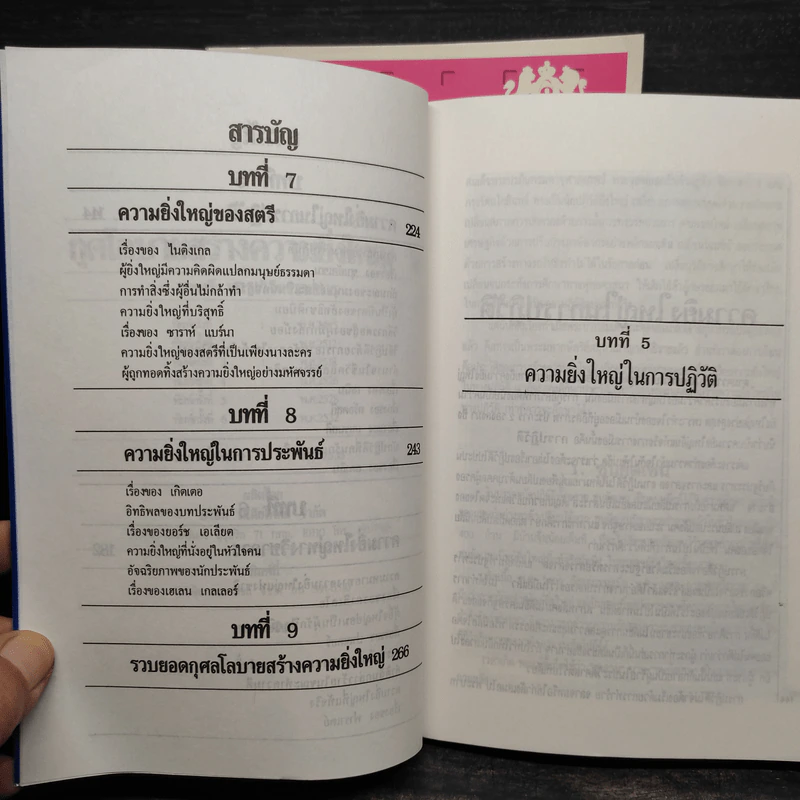 สารบัญ
บทที่ 7
ความยิ่งใหญ่ของสตรี 224
เรื่องของ ไนติงเกล
ผู้ยิ่งใหญ่มีความคิดผิดแปลกมนุษย์ธรรมดา
การทำสิ่งซึ่งผู้อื่นไม่กล้าทำ
ความยิ่งใหญ่ที่บริสุทธิ์
เรื่องของ ซาราห์ แบร์นา
ความยิ่งใหญ่ของสตรีที่เป็นเพียงนางละคร
ผู้ถูกทอดทิ้งสร้างความยิ่งใหญ่อย่างมหัศจรรย์
บทที่ 8
ความยิ่งใหญ่ในการประพันธ์ 243
เรื่องของ เกิตเตอ
อิทธิพลของบทประพันธ์
เรื่องของยอร์ช เอเลียต
ความยิ่งใหญ่ที่นั่งอยู่ในหัวใจคน
อัจฉริยภาพของนักประพันธ์
เรื่องของเฮเลน เกลเลอร์
บทที่ 9
รวบยอดกุศลโลบายสร้างความยิ่งใหญ่ 266
บทที่ 5
ความยิ่งใหญ่ในการปฏิวัติ